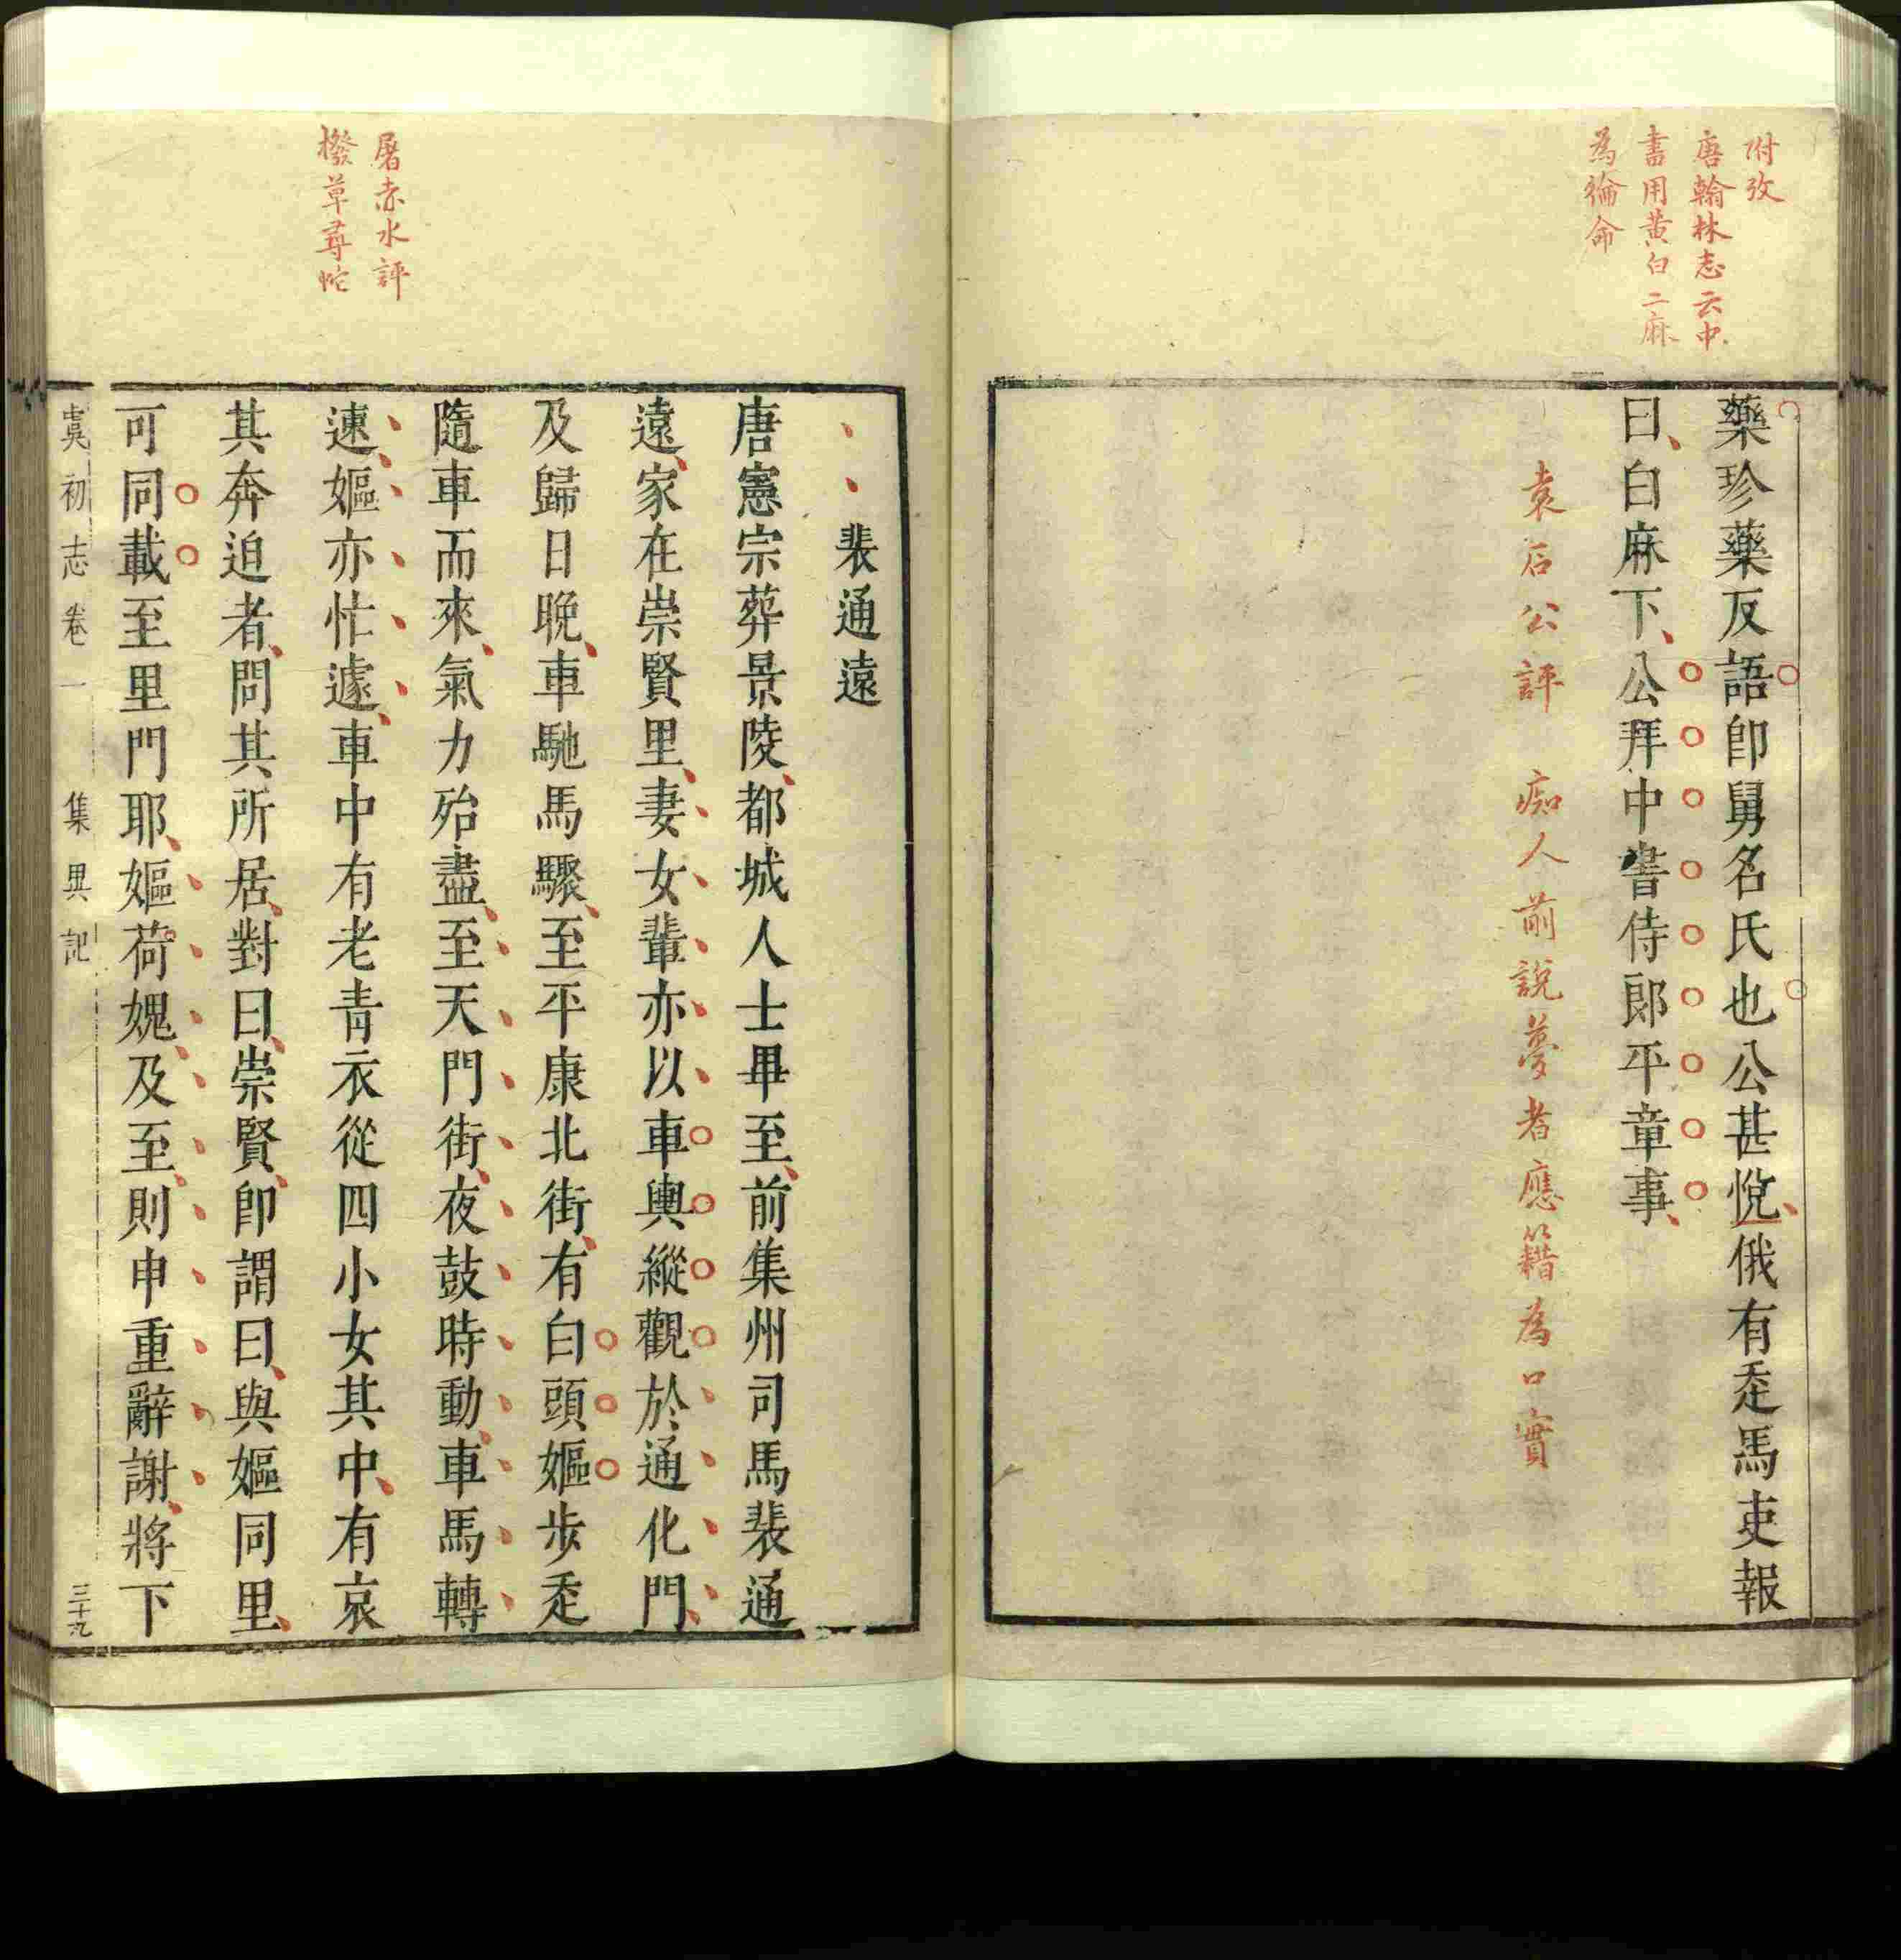 附攷
唐翰林志云中
書用黃白二麻
為綸命
藥珍藥反語卽舅名氏也公甚悅俄有走馬吏報
曰白麻下公拜中書侍郎平章事
袁石公評 痴人前說夢者應籍為口實
裴通遠
唐憲宗葬景陵都城人士畢至前集州司馬裴通
遠家在崇賢里妻女輩亦以車輿縱觀於通化門
及歸日晚車馳馬驟至平康北街有白頭嫗步走
隨車而來氣力殆盡至天門街夜鼓時動車馬轉
速嫗亦忙遽車中有老青衣從四小女其中有哀
其奔迫者問其所居對曰崇賢卽謂曰與嫗同里
可同載至里門耶嫗荷媿及至則申重辭謝將下
屠赤水評
撥草尋蛇
虞初志卷一 集異記 三十九